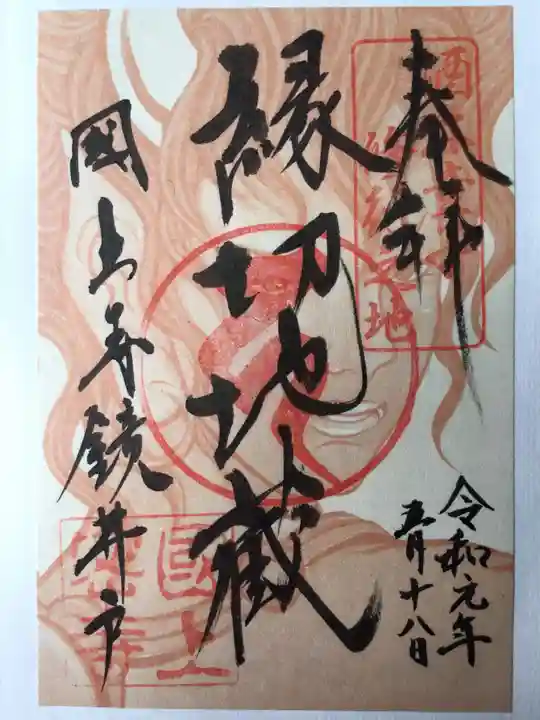 奉拝
縁切地蔵
國上寺鏡井戸
令和元年
五月十八日